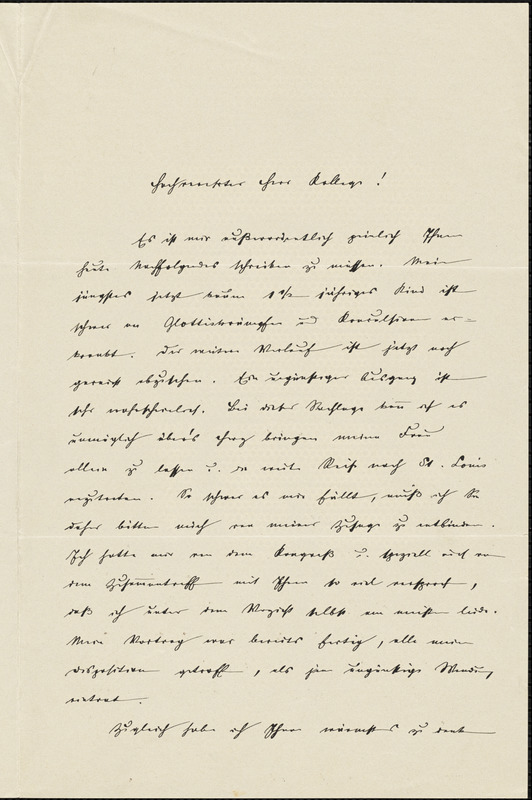 Hochverehrter Herr Kollege!
Es ist mir außerordentlich peinlich Ihnen
heute Nachfolgendes schreiben zu müssen. Mein
jüngstes jetzt kaum 1 1/2 jähriges Kind ist
schwer an Glottiskrämpfen und Konvulsionen er-
krankt. Der weitere Verlauf ist jetzt noch
abzusehen. Ein ungünstiger Ausgang ist
sehr wahrscheinlich. Bei dieser Sachlage kann ich es
unmöglich über's Herz bringen meine Frau
allein zu lassen u. die weite Reise nach St. Louis
anzutreten. So schwer es mir fällt, muß ich Sie
daher bitten mich von meiner Zusage zu entbinden.
Ich hatte mir von dem Kongreß u. speziell auch von
dem Zusammentreffen mit Ihnen so viel versprochen,
daß ich unter dem Verzicht selbst am meisten leide.
Mein Vortrag war bereits fertig, alle meine
Disposition getroffen, als jene ungünstige Wendung
eintrat.
Zugleich habe ich Ihnen wärmstens zu danken